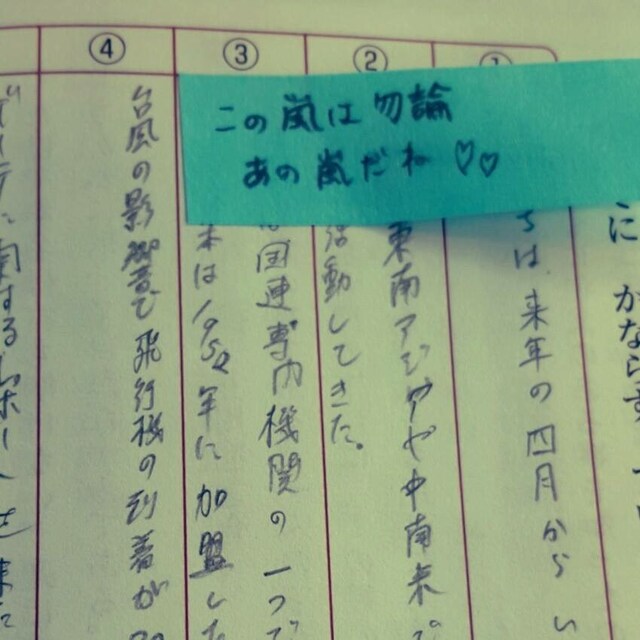 ①
②
③
④
この嵐は勿論
あの嵐だね♡♡
に かならず
は、来年の四月から い
東南アジアや中南米
活動してきた。
国連専門機関の一つで
本は1952年に加盟した
台風の影響で飛行機の到着が